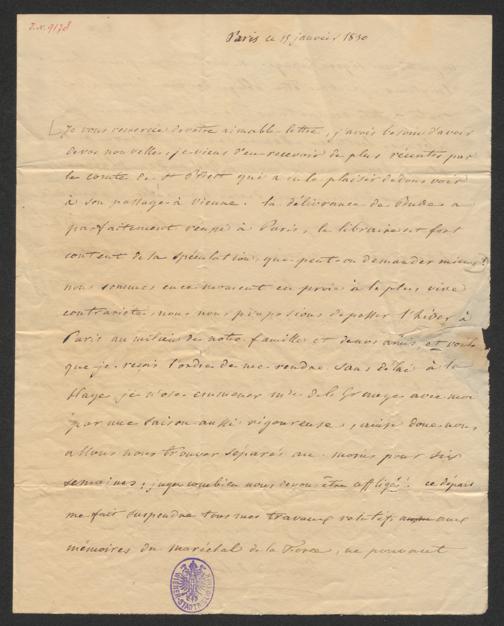 I.N. 9178
Paris ce 15 janvier 1830
Je vous remercie de votre aimable lettre, j'avois besoin d'avoir
de vos nouvelles, je viens d'en recevoir de plus récentes par
le comte de qui a eu le plaisir de vous voir
à son passage à Vienne. la délivrance de Bude a
parfaitement reussi à Paris, le libraire est fort
content de la spéculation, que peut-on demander mieux?
nous sommes en ce moment en proie à la plus vive
contrarieté; nous nous proposions de passer l'hiver à
Paris au milieu de notre famille et de nos amis, et voila
que je reçois l'ordre de me rendre sans délai à la
Haye je n'ose emmener mde de la Grange avec moi
par une saison aussi rigoureuse, ainsi donc nous
allons nous trouver séparés au moins pour six
semaines; jugez combien nous devons être affligés. ce depart
me fait suspendre tous mes travaux relatifs aux
mémoires du maréchal de la Force, ne pouvant
WIENER STADT